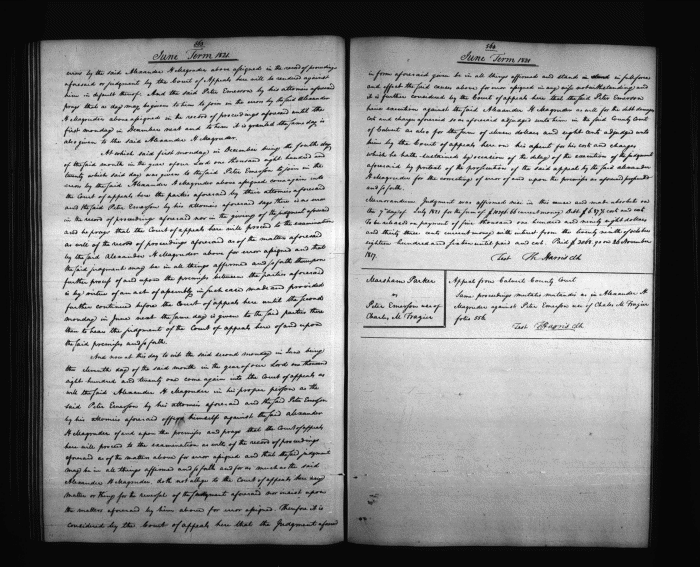 562
June Term 1821
errors by the said Alexander H Magruder above assigned in the record of proceedings
aforesaid or judgment by the Court of Appeals here will be rendered against
him in default thereof. And the said Peter Emerson by his attornies aforesaid
prays that a day may be given to him to join in the errors by the said Alexander
H Magruder above assigned in the record of proceedings aforesaid until the
first monday in December next and to him it is granted the same day is
also given to the said Alexander H Magruder.
At which said first monday in December being the fourth day
of the said month in the year of our Lord one thousand eight hundred and
twenty which said day was given to the said Peter Emerson to join in the
errors by the said Alexander H Magruder above assigned come again into
the Court of Appeals here the parties aforesaid by their attornies aforesaid
and the said Peter Emerson by his attornies aforesaid says there is no error
in the record of proceedings aforesaid nor in the giving of the judgment aforesaid
and he prays that the Court of Appeals here will proceed to the examination
as well of the record of proceedings aforesaid as of the matters aforesaid
by the said Alexander H Magruder above for error assigned and that
the said judgment may be in all things affirmed and so forth whereupon
further process of and upon the premises between the parties aforesaid
is by virtue of an act of assembly in such case made and provided
further continued before the Court of Appeals here until the second
monday in June next the same day is given to the said parties there
then to hear the judgment of the Court of Appeals here of and upon
the said premises and so forth.
And now at this day to wit the said second monday in June being
the eleventh day of the said month in the year of our Lord one thousand
eight hundred and twenty one come again into the Court of Appeals as
well the said Alexander H Magruder in his proper person as the
said Peter Emerson by his attornies aforesaid and the said Peter Emerson
by his attornies aforesaid offers himself against the said Alexander
H Magruder of and upon the premises and prays that the Court of Appeals
here will proceed to the examination as well of the record of proceedings
aforesaid as of the matters above for error assigned and that the said judgment
may be in all things affirmed and so forth and for as much as the said
Alexander H Magruder doth not allege to the Court of Appeals here any
matter or thing for the reversal of the judgment aforesaid nor insist upon
the matters aforesaid by him above for error assigned. Therefore it is
considered by the Court of Appeals here that the Judgment aforesaid
563
June Term 1821
in form aforesaid given be in all things affirmed and stand in full force
and effect the said causes above for error assigned in any wise notwithstanding and
it is further considered by the Court of Appeals here that the said Peter Emerson
have execution against the said Alexander H Magruder as well for the debt damages
cost and charges aforesaid so as aforesaid adjudged unto him in the said County Court
of Calvert as also for the sum of eleven dollars and eight cents adjudged unto
him by the Court of appeals here on his assent for his cost and charges
which he hath sustained by reason of the delay of the execution of the judgment
aforesaid by pretext of the prosecution of the said appeal by the said Alexander
H Magruder for the correcting of error of and upon the premises as aforesaid prosecuted
and so forth
Memorandum Judgment was affirmed nisi in this cause and made absolute on
the 7 day of July 1821 for the sum of current money Debt cost and cost
To be released on payment of five thousand one hundred and ninety eight dollars
and thirty three cents current money with interest from the twenty ninth of October
eighteen hundred and fourteen until paid and cost. Paid 26 November
1817.
Test Th. Harris Clk
Marsham Parker
vs
Peter Emerson use of
Charles M Frazier
Appeal from Calvert County Court
Same proceedings mutatis mutandis as in Alexander H
Magruder against Peter Emerson use of Charles M Frazier
folio 556
Test Th Harris Clk